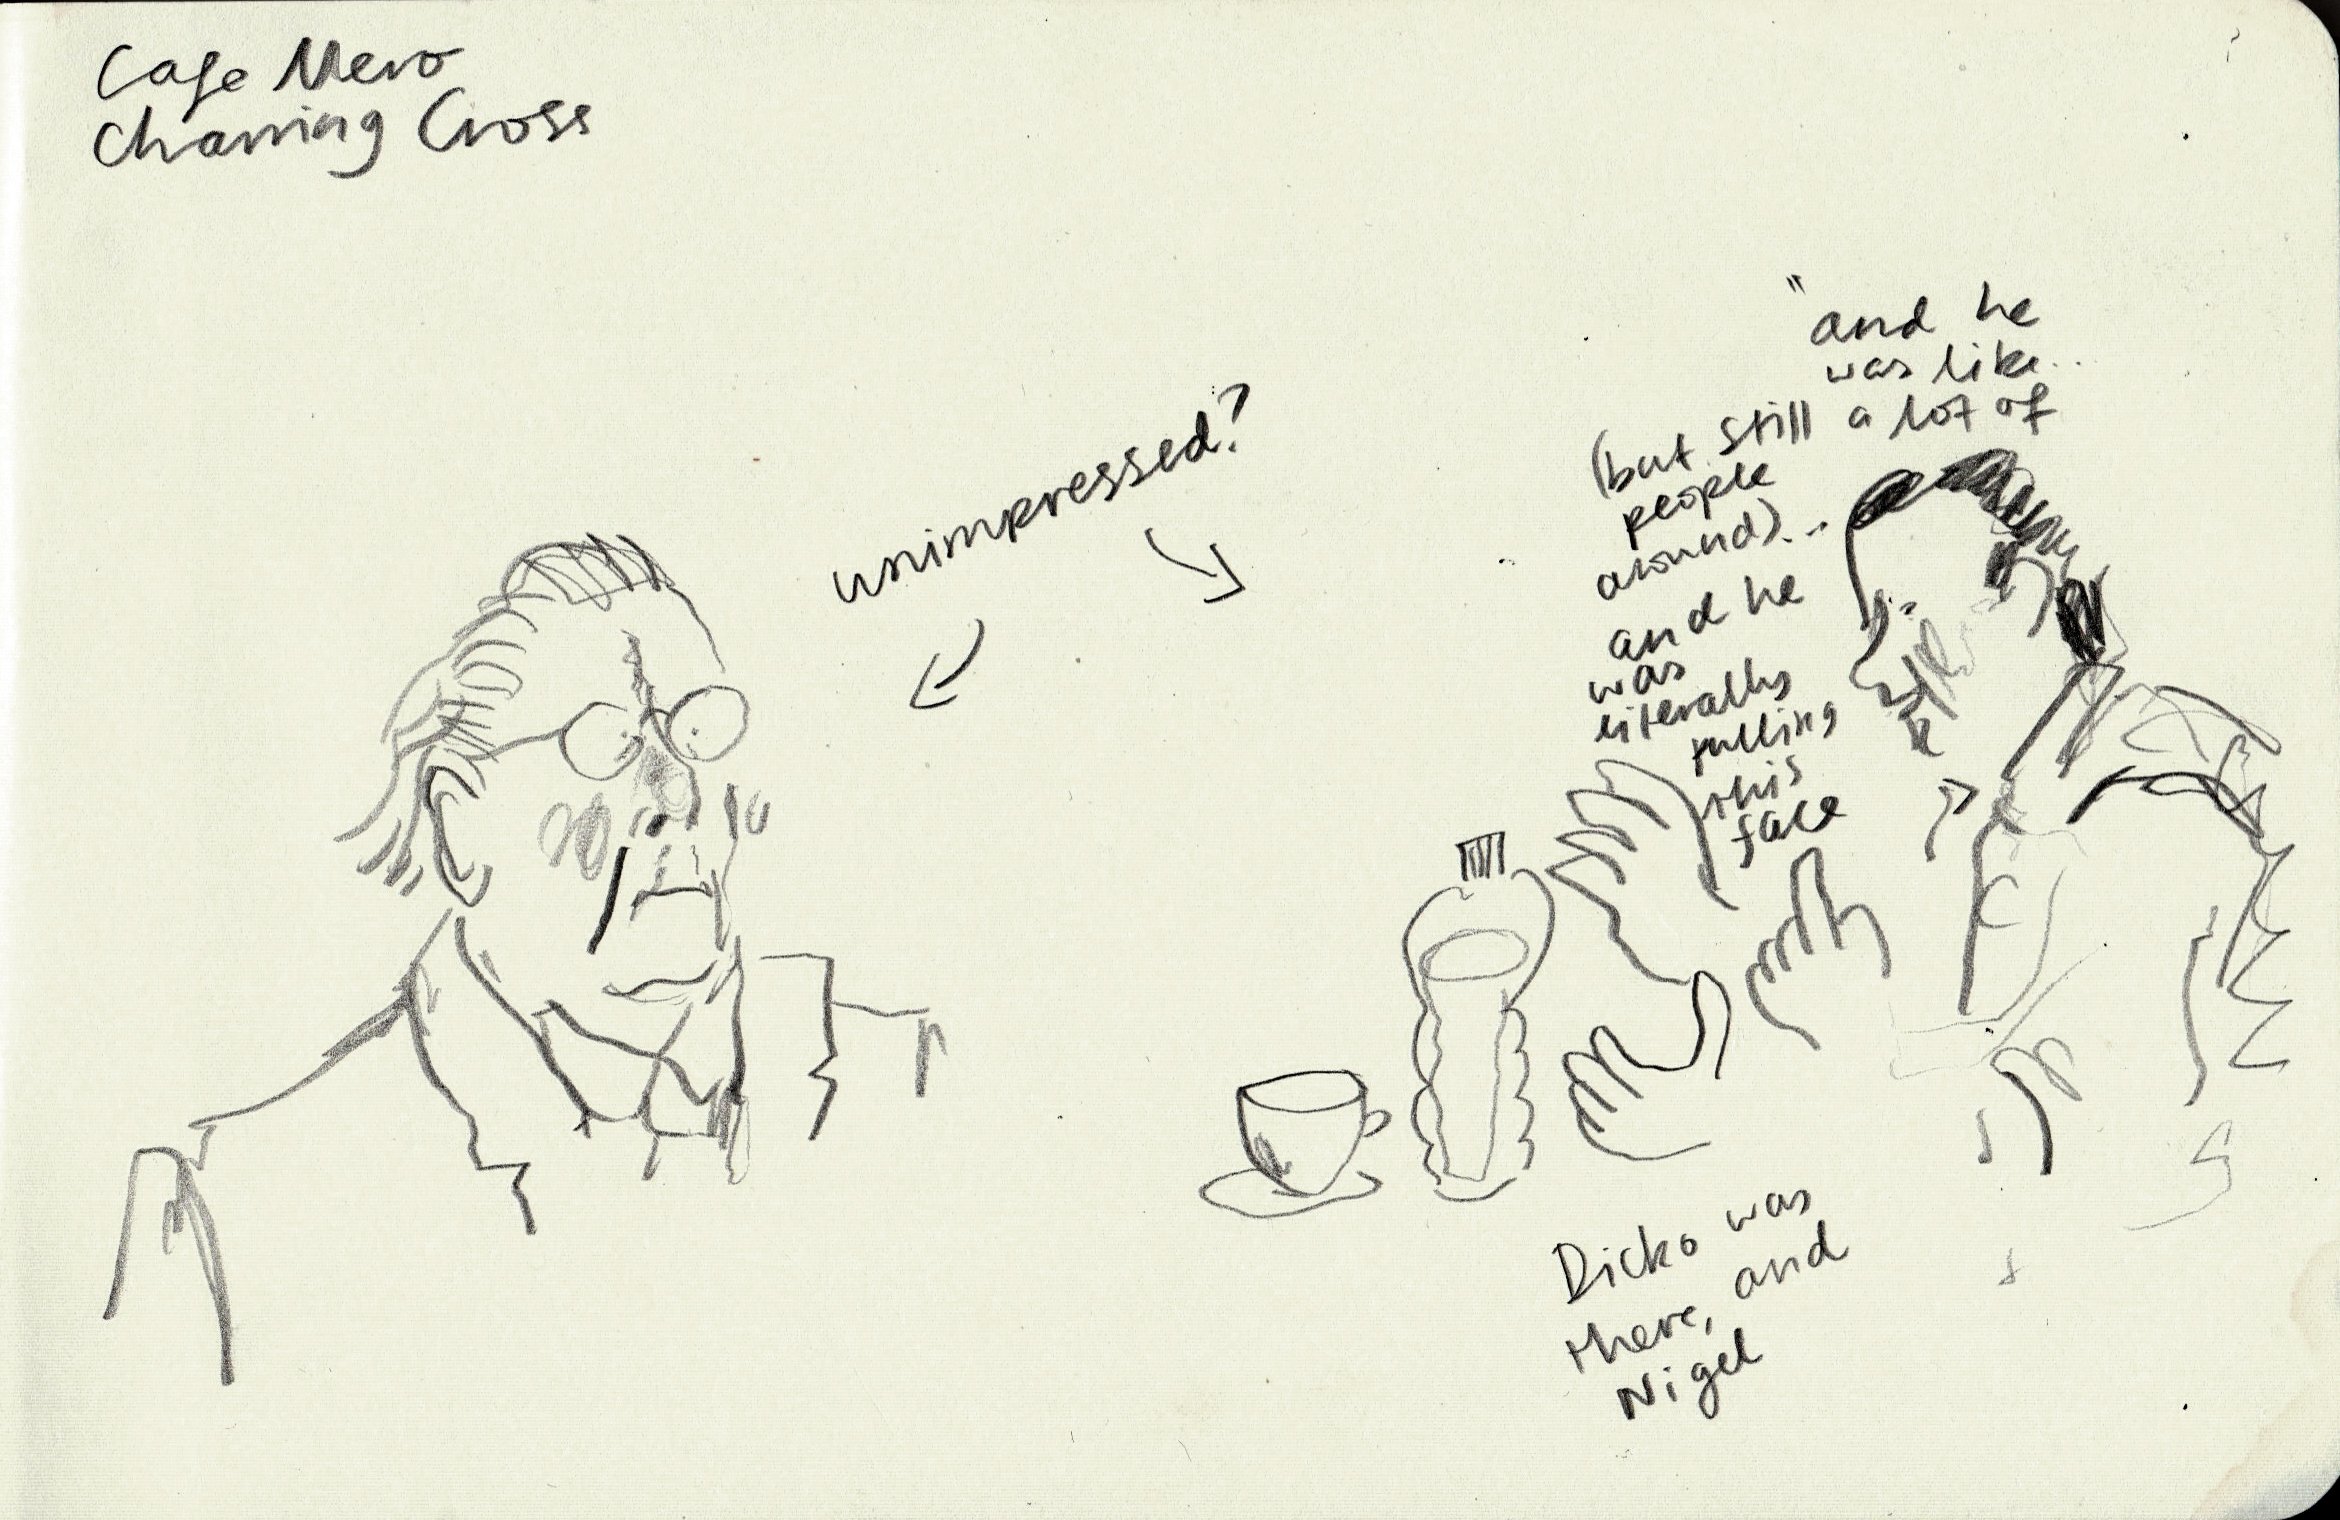 Cafe Nero
Charring Cross
unimpressed?
"and he
was like..
(but still a lot of
people
around)...
and he
was
literally
pulling
this
face
Dicko was
there, and
Nigel